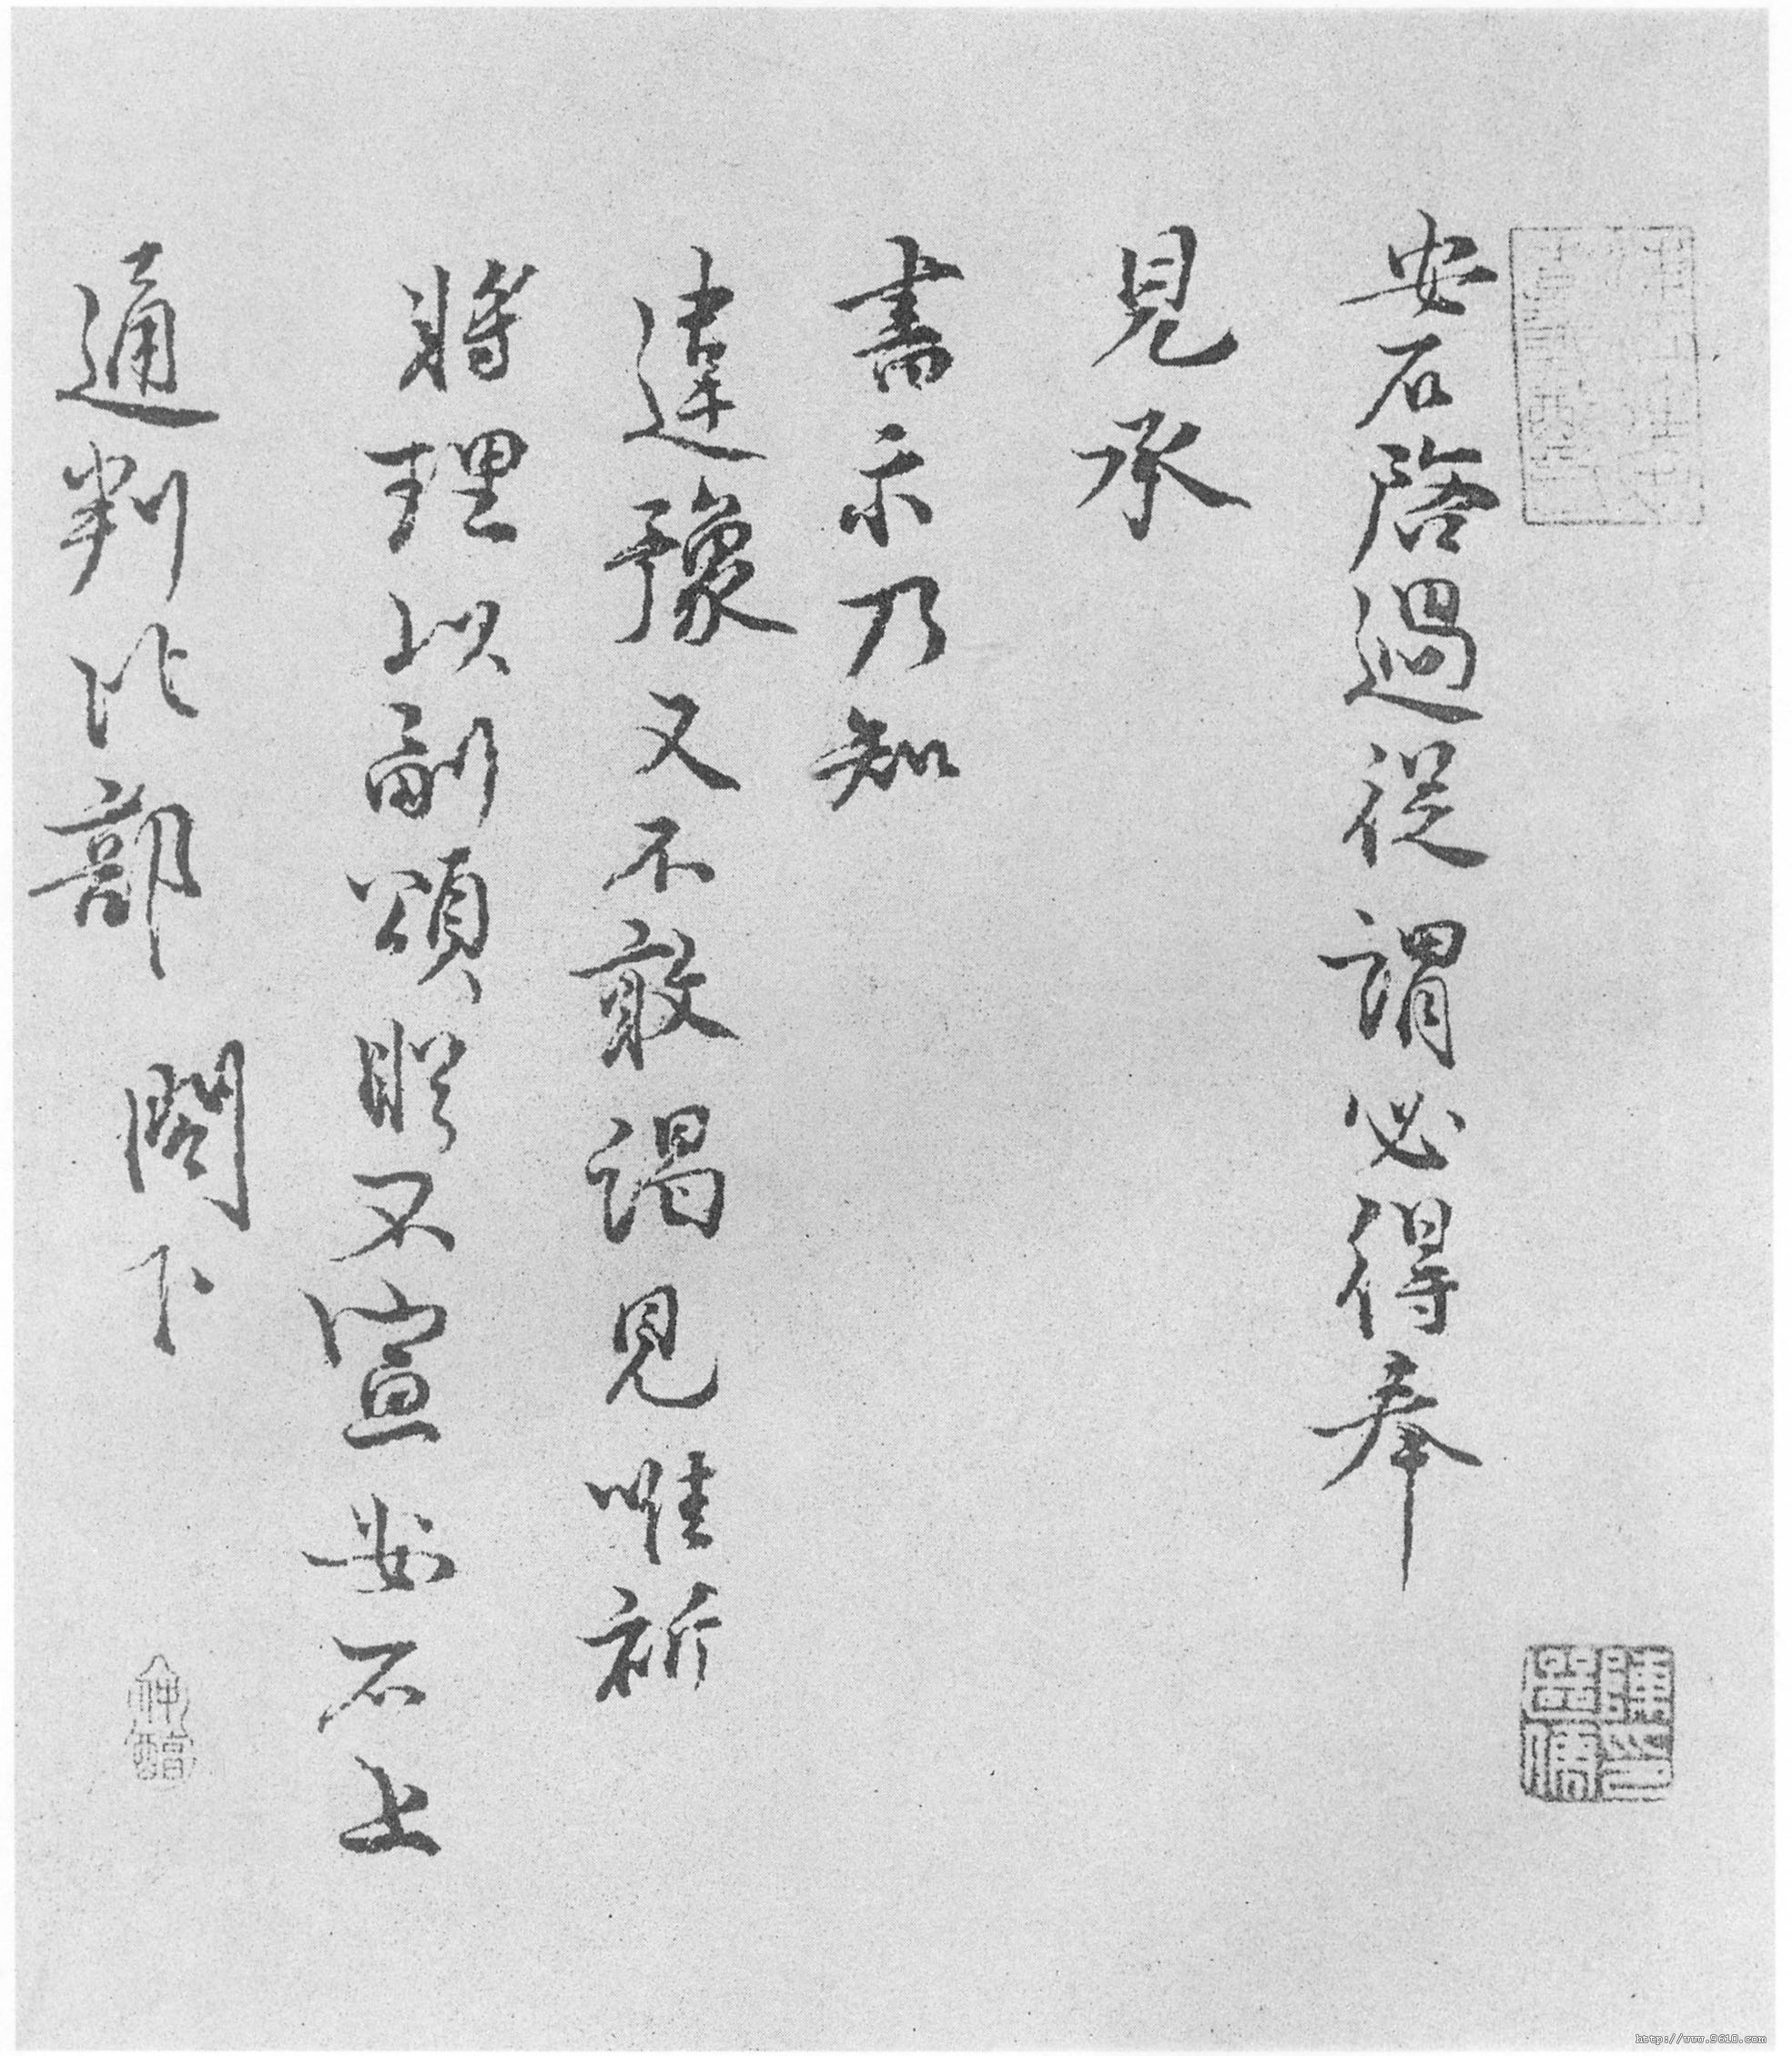 安石啓過從謂必得奉
見承
書示乃知
違豫又不敢謁見唯祈
將理以副頌詠不宣安石上
通判比部 閤下
仲醕
http://www.9610.com